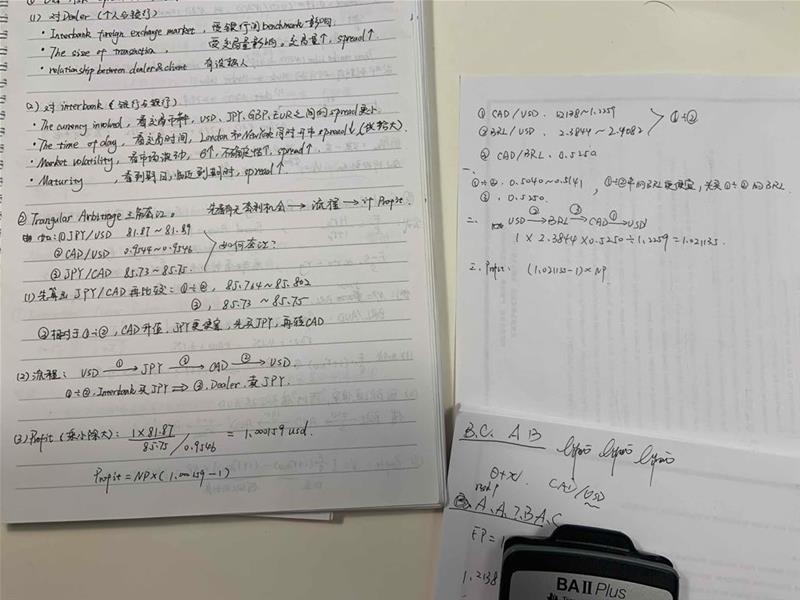 (1) 对Dealer (个人与投行)
· Interbank foreign exchange market, 受银行间benchmark影响.
· The size of transaction, 受交易量影响。交易量↑, spread↑
· relationship between dealer & client 有没熟人
(2) 对 interbank (银行与银行)
· The currency involved, 看交易币种, USD, JPY, GBP, EUR之间的spread更小
· The time of day, 看交易时间, London和NewYork同时开市spread↓
· Market volatility, 看市场波动, 6↑, 不确定性↑, spread↑.
· Maturity, 看到期日, 临近到期时, spread↑.
② Trangular Arbitrage 三角套汇。 先看有无套利机会 → 流程 → 计 Profit.
① JPY/USD 81.87 ~ 81.89
② CAD/USD 0.9544 ~ 0.9546
③ JPY/CAD 85.73 ~ 85.75
如何套汇?
(1) 先算出 JPY/CAD 再比较: ①÷②, 85.764 ~ 85.802
③, 85.73 ~ 85.75
③相对于①÷②, CAD升值, JPY更便宜, 先买JPY, 再转CAD
(2) 流程: USD ① → JPY ③ → CAD ② → USD.
①÷②. Interbank 买 JPY ⇒ ③. Dealer. 卖 JPY.
(3) Profit (乘小除大): 1×81.87 / 85.75 / 0.9546 = 1.000159 usd.
Profit = NP×(1.000159-1)
① CAD/USD. 1.2138 ~ 1.2259
② BRL/USD. 2.3844 ~ 2.4082
③ CAD/BRL. 0.5250
①÷②
一.
①÷②. 0.5040 ~ 0.5141, ①÷②中的BRL更便宜, 先买①÷②的BRL.
③. 0.5250
二. USD ② → BRL ③ → CAD ① → USD
1 × 2.3844 × 0.5250 ÷ 1.2259 = 1.021135.
三. Profit: (1.021135-1)×NP
B.C. A B
CAD/USD
A. A. ?. B A. C
FP = 1
1.2138
BA II Plus